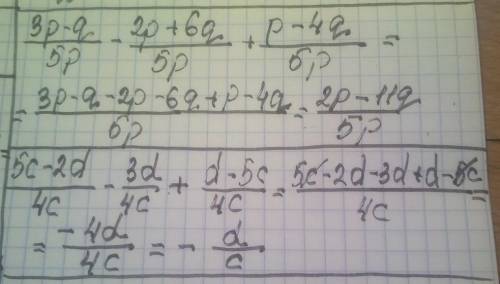 (3p-q)/5p - (2p+6q)/5p + (p-4q)/5p =
= (3p-q-2p-6q+p-4q)/5p = (2p-11q)/5p
(5c-2d)/4c - 3d/4c + (d-5c)/4c = (5c-2d-3d+d-5c)/4c =
= -4d/4c = - d/c